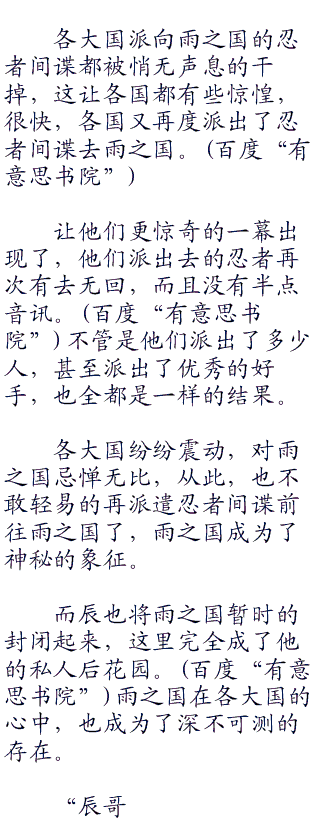 各大国派向雨之国的忍
者间谍都被悄无声息的干
掉，这让各国都有些惊惶，
很快，各国又再度派出了忍
者间谍去雨之国。(百度“有
意思书院”)
让他们更惊奇的一幕出
现了，他们派出去的忍者再
次有去无回，而且没有半点
音讯。(百度“有意思书
院”)不管是他们派出了多少
人，甚至派出了优秀的好
手，也全都是一样的结果。
各大国纷纷震动，对雨
之国忌惮无比，从此，也不
敢轻易的再派遣忍者间谍前
往雨之国了，雨之国成为了
神秘的象征。
而辰也将雨之国暂时的
封闭起来，这里完全成了他
的私人后花园。(百度“有意
思书院”)雨之国在各大国的
心中，也成为了深不可测的
存在。
“辰哥